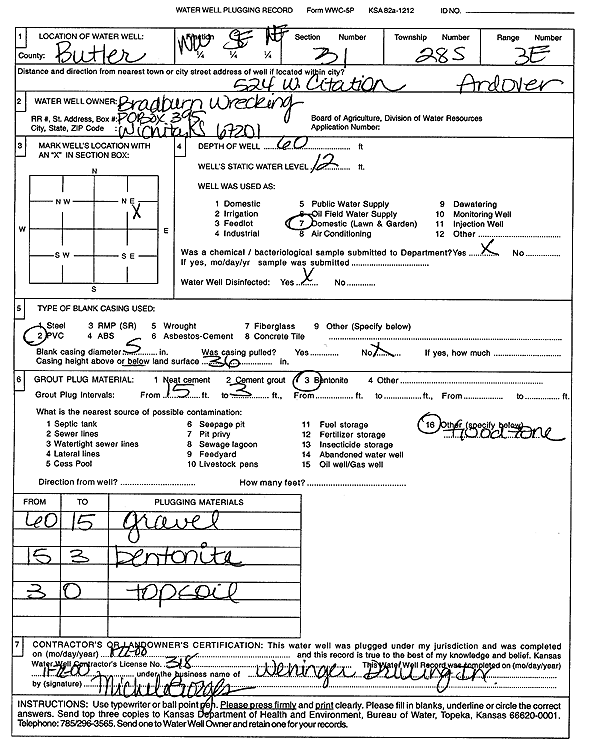 WATER WELL PLUGGING RECORD Form WWC-5P KSA 82a-1212 ID NO.
1 LOCATION OF WATER WELL: Fraction Section Number Township Number Range Number
County: Butler NW ¼ SE ¼ NE ¼ 31 28S 3E
Distance and direction from nearest town or city street address of well if located within city?
524 W. Citation Andover
2 WATER WELL OWNER: Bradburn Wrecking
RR #, St. Address, Box #: PO BOX 395 Board of Agriculture, Division of Water Resources
City, State, ZIP Code : Wichita, KS 67201 Application Number:
3 MARK WELL'S LOCATION WITH AN "X" IN SECTION BOX:
N
NW NE
X
W E
SW SE
S
4 DEPTH OF WELL 60 ft
WELL'S STATIC WATER LEVEL 12 ft.
WELL WAS USED AS:
1 Domestic 5 Public Water Supply 9 Dewatering
2 Irrigation 6 Oil Field Water Supply 10 Monitoring Well
3 Feedlot 7 Domestic (Lawn & Garden) 11 Injection Well
4 Industrial 8 Air Conditioning 12 Other
Was a chemical / bacteriological sample submitted to Department? Yes X No
If yes, mo/day/yr sample was submitted
Water Well Disinfected: Yes X No
5 TYPE OF BLANK CASING USED:
1 Steel 3 RMP (SR) 5 Wrought 7 Fiberglass 9 Other (Specify below)
2 PVC 4 ABS 6 Asbestos-Cement 8 Concrete Tile
Blank casing diameter 5 in. Was casing pulled? Yes No X If yes, how much
Casing height above or below land surface 36 in.
6 GROUT PLUG MATERIAL: 1 Neat cement 2 Cement grout 3 Bentonite 4 Other
Grout Plug Intervals: From 15 ft. to 3 ft., From ft. to ft., From to ft.
What is the nearest source of possible contamination:
1 Septic tank 6 Seepage pit 11 Fuel storage 16 Other (specify below)
2 Sewer lines 7 Pit privy 12 Fertilizer storage flood zone
3 Watertight sewer lines 8 Sewage lagoon 13 Insecticide storage
4 Lateral lines 9 Feedyard 14 Abandoned water well
5 Cess Pool 10 Livestock pens 15 Oil well/Gas well
Direction from well? How many feet?
FROM TO PLUGGING MATERIALS
60 15 gravel
15 3 bentonite
3 0 topsoil
7 CONTRACTOR'S OR LANDOWNER'S CERTIFICATION: This water well was plugged under my jurisdiction and was completed
on (mo/day/year) and this record is true to the best of my knowledge and belief. Kansas
Water Well Contractor's License No. 318 This Water Well Record was completed on (mo/day/year)
under the business name of Weninger Drilling Inc.
by (signature)
INSTRUCTIONS: Use typewriter or ball point pen. Please press firmly and print clearly. Please fill in blanks, underline or circle the correct
answers. Send top three copies to Kansas Department of Health and Environment, Bureau of Water, Topeka, Kansas 66620-0001.
Telephone: 785/296-3565. Send one to Water Well Owner and retain one for your records.